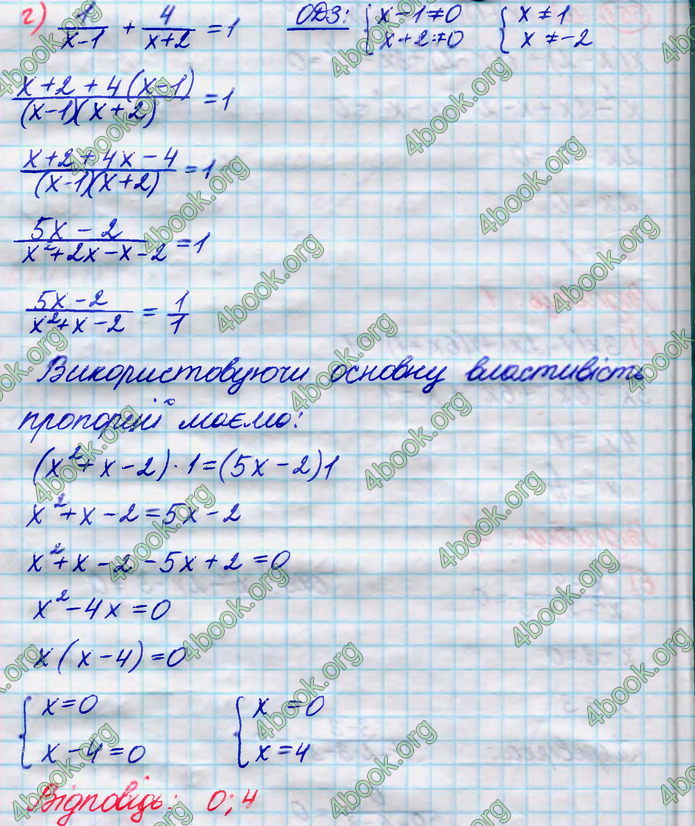 г) 1/(x-1) + 4/(x+2) = 1 ОДЗ: { x-1≠0 { x≠1
x+2≠0 x≠-2
(x+2+4(x-1))/((x-1)(x+2)) = 1
(x+2+4x-4)/((x-1)(x+2)) = 1
(5x-2)/(x²+2x-x-2) = 1
(5x-2)/(x²+x-2) = 1/1
Використовуючи основну властивість
пропорції маємо:
(x²+x-2)·1=(5x-2)1
x²+x-2=5x-2
x²+x-2-5x+2=0
x²-4x=0
x(x-4)=0
{ x=0 { x=0
x-4=0 x=4
Відповідь: 0; 4
4book.org